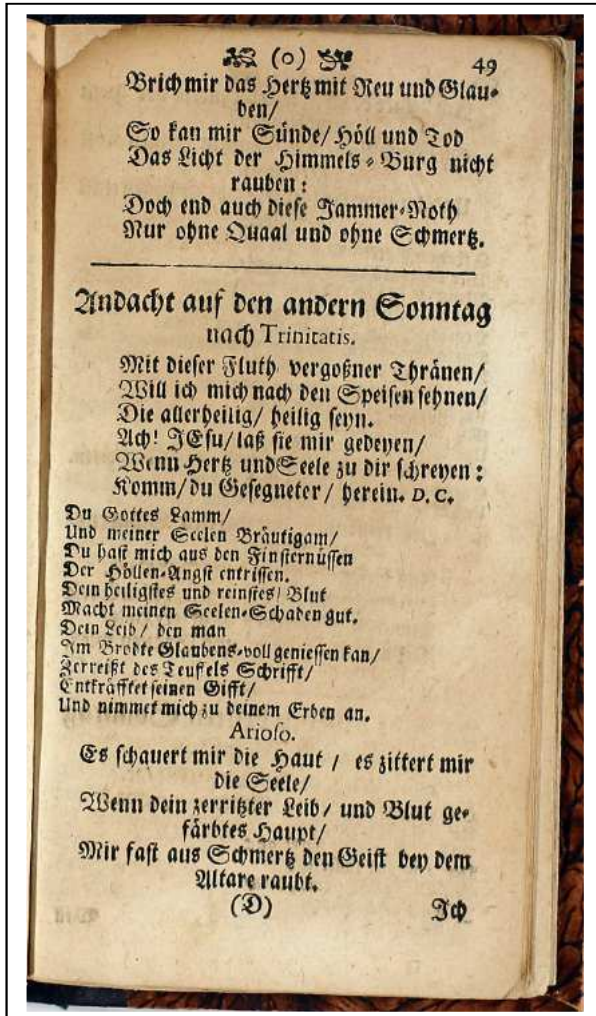 (o) 49
Brich mir das Hertz mit Reu und Glau-
ben/
So kan mir Sünde/ Höll und Tod
Das Licht der Himmels-Burg nicht
rauben:
Doch end auch diese Jammer-Noth
Nur ohne Quaal und ohne Schmertz.
Andacht auf den andern Sonntag
nach Trinitatis.
Mit dieser Fluth vergoßner Thränen/
Will ich mich nach den Speisen sehnen/
Die allerheilig/ heilig seyn.
Ach! JEsu/ laß sie mir gedeyen/
Wenn Hertz und Seele zu dir schreyen:
Komm/ du Gesegneter/ herein. D. C.
Du Gottes Lamm/
Und meiner Seelen Bräutigam/
Du hast mich aus den Finsternüssen
Der Höllen-Angst entrissen.
Dein heiligstes und reinstes Blut
Macht meinen Seelen-Schaden gut.
Dein Leib/ den man
Im Brodte Glaubens-voll geniessen kan/
Zerreißt des Teuffels Schrifft/
Entkräfftet seinen Gifft/
Und nimmet mich zu deinem Erben an.
Arioso.
Es schauert mir die Haut/ es zittert mir
die Seele/
Wenn dein zerritzter Leib/ und Blut ge-
färbtes Haupt/
Mir fast aus Schmertz den Geist bey dem
Altare raubt.
(D) Ich